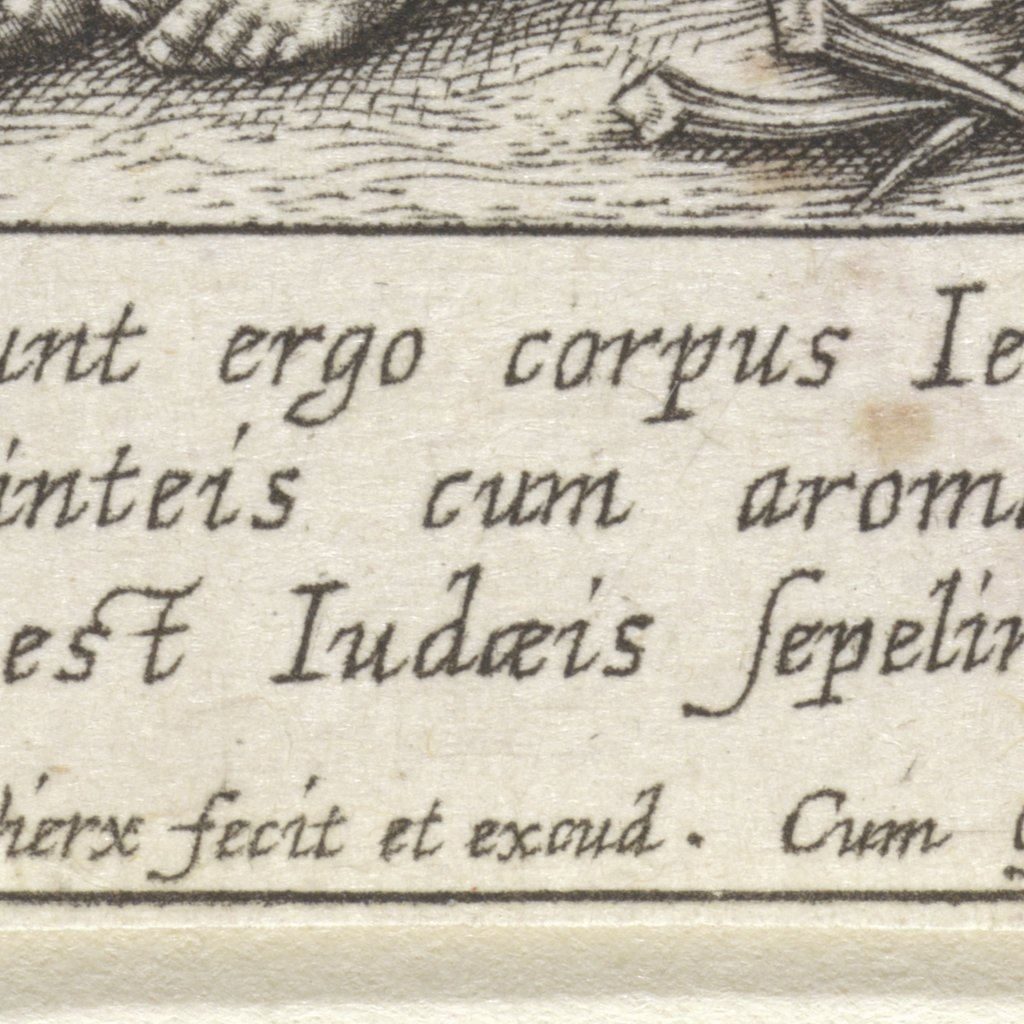 unt ergo corpus Ie
inteis cum arom
est Iudæis ſepelin
hierx fecit et excud. Cum